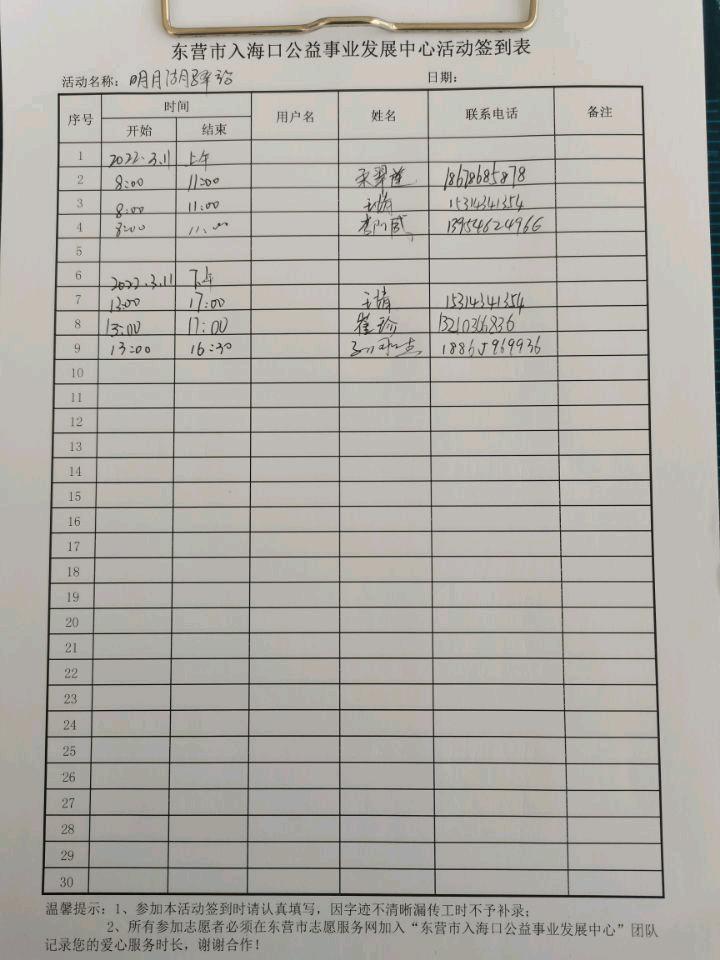 东营市入海口公益事业发展中心活动签到表
活动名称：明月湖驿站 日期：
序号 时间 用户名 姓名 联系电话 备注
开始 结束
1 2022.3.11 上午
2 8:00 11:00 18678685878
3 8:00 11:00 王婧 15314341354
4 8:00 11:00 13954624966
5
6 2022.3.11 下午
7 13:00 17:00 王婧 15314341354
8 13:00 17:00 崔珍
9 13:00 16:30 18865969936
10
11
12
13
14
15
16
17
18
19
20
21
22
23
24
25
26
27
28
29
30
温馨提示：1、参加本活动签到时请认真填写，因字迹不清晰漏传工时不予补录；
2、所有参加志愿者必须在东营市志愿服务网加入“东营市入海口公益事业发展中心”团队
记录您的爱心服务时长，谢谢合作！